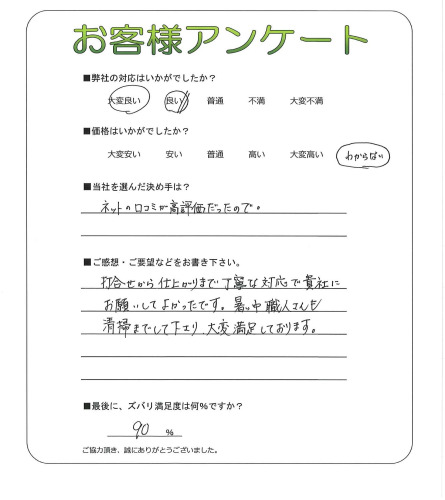 お客様アンケート
■弊社の対応はいかがでしたか？
大変良い 良い 普通 不満 大変不満
■価格はいかがでしたか？
大変安い 安い 普通 高い 大変高い わからない
■当社を選んだ決め手は？
ネットの口コミが高評価だったので。
■ご感想・ご要望などをお書き下さい。
打合せから仕上がりまで丁寧な対応で貴社に
お願いしてよかったです。暑い中職人さんも
清掃までして下さり大変満足しております。
■最後に、ズバリ満足度は何％ですか？
90 ％
ご協力頂き、誠にありがとうございました。